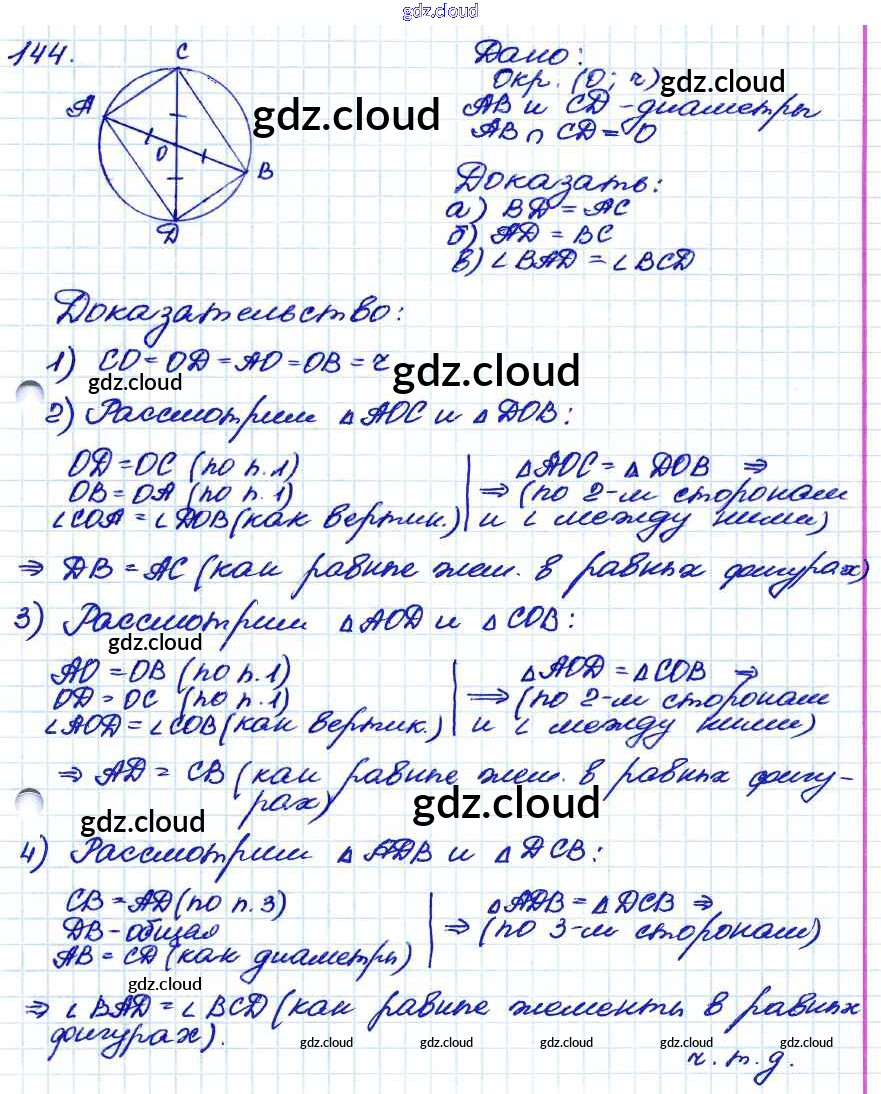 gdz.cloud
144.
C
A
O
B
D
gdz.cloud
Дано:
Окр. (O; r)
gdz.cloud
AB и CD - диаметры
AB ∩ CD = O
Доказать:
а) BD = AC
б) AD = BC
в) ∠BAD = ∠BCD
Доказательство:
1) CO = OD = AO = OB = r
gdz.cloud
gdz.cloud
2) Рассмотрим △AOC и △DOB:
OD = OC (по п.1) | △AOC = △DOB ⇒
OB = OA (по п.1) | ⇒ (по 2-м сторонам
∠COA = ∠DOB (как вертик.) | и ∠ между ними)
⇒ DB = AC (как равные элем. в равных фигурах)
3) Рассмотрим △AOD и △COB:
gdz.cloud
AO = OB (по п.1) | △AOD = △COB ⇒
OD = OC (по п.1) | ⇒ (по 2-м сторонам
∠AOD = ∠COB (как вертик.) | и ∠ между ними)
⇒ AD = CB (как равные элем. в равных фигу-
рах)
gdz.cloud
gdz.cloud
4) Рассмотрим △ADB и △DCB:
CB = AD (по п.3) | △ADB = △DCB ⇒
DB - общая | ⇒ (по 3-м сторонам)
AB = CD (как диаметры)
gdz.cloud
⇒ ∠BAD = ∠BCD (как равные элементы в равных
фигурах).
gdz.cloud gdz.cloud gdz.cloud gdz.cloud
ч.т.д.